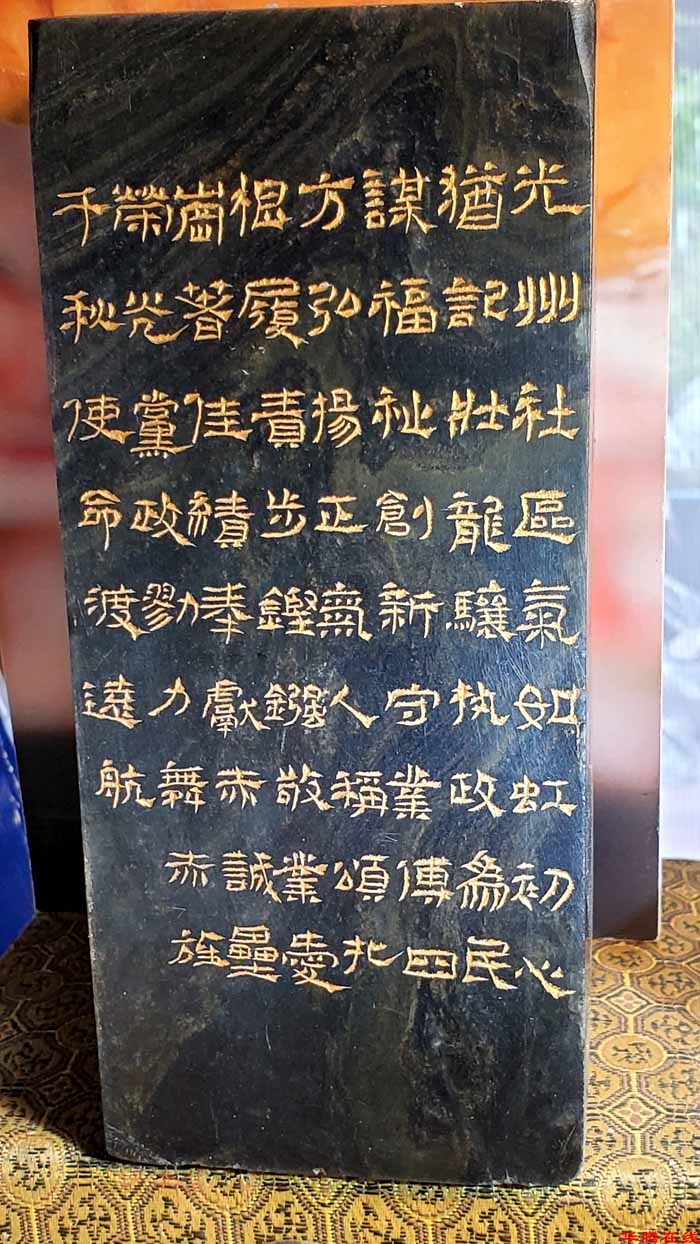 光州社區氣如虹初心
猶記壯龍驤執政為民
謀福祉創新守業傳四
方弘揚正氣人稱頌扎
根履責步鏗鏹敬業愛
崗著佳績奉獻赤誠壘
榮光黨政勠力舞赤旌
千秋使命渡遠航
华腾在线